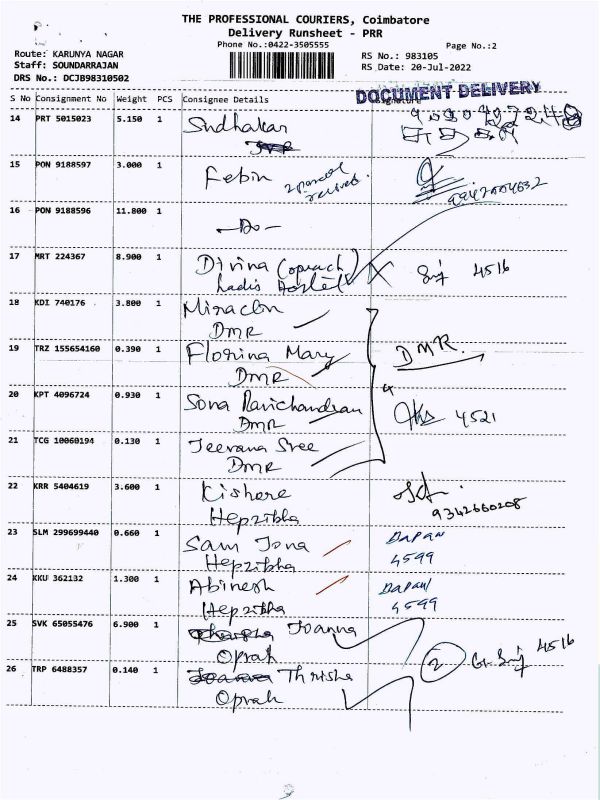 THE PROFESSIONAL COURIERS, Coimbatore
Delivery Runsheet - PRR
Phone No.:0422-3505555
Page No.:2
Route: KARUNYA NAGAR
Staff: SOUNDARRAJAN
DRS No.: DCJB98310502
RS No.: 983105
RS Date: 20-Jul-2022
DOCUMENT DELIVERY
S No Consignment No Weight PCS Consignee Details
14 PRT 5015023 5.150 1 Sudhakar
15 PON 9188597 3.000 1 Febin 2 parcel received.
9942004632
16 PON 9188596 11.800 1 -Do-
17 MRT 224367 8.900 1 Divina (oprach) 4516
Ladis Hostel
18 KDI 740176 3.800 1 Miraclin
DMR
19 TRZ 155654160 0.390 1 Florina Mary DMR.
DMR
20 KPT 4096724 0.930 1 Sona Ravichandran 4521
DMR
21 TCG 10060194 0.130 1 Jeevana Sree
DMR
22 KRR 5404619 3.600 1 Kishore
Hepzibha 9342660208
23 SLM 299699440 0.660 1 Sam Jona DAPAN
Hepzibha 4599
24 KKU 362132 1.300 1 Abinesh DAPAN
Hepzibha 4599
25 SVK 65055476 6.900 1 Joanna
Oprah 2 4516
26 TRP 6488357 0.140 1 Thrisha
Oprah